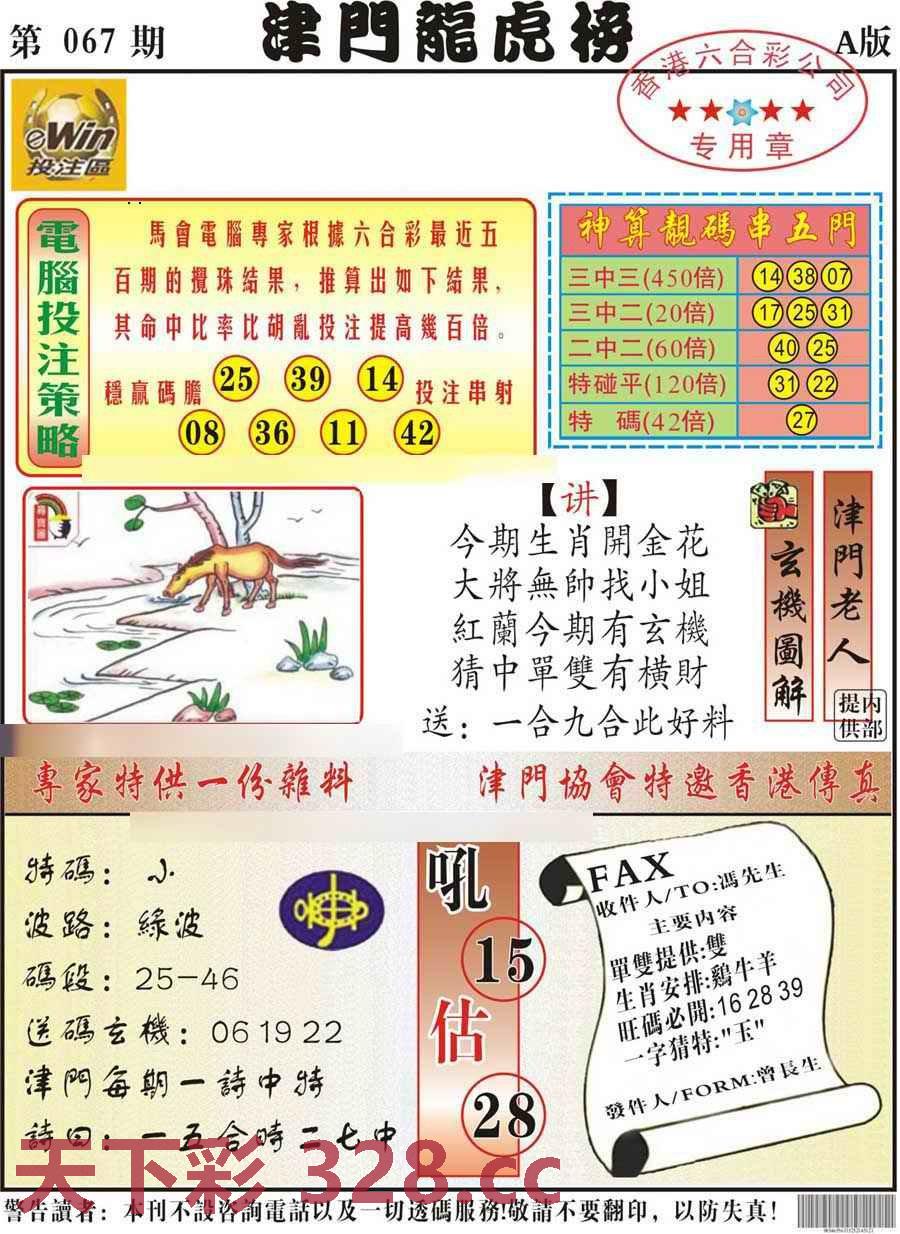 第 067 期
津門龍虎榜
A版
香港六合彩公司
专用章
eWin
投注區
電腦投注策略
馬會電腦專家根據六合彩最近五
百期的攪珠結果，推算出如下結果，
其命中比率比胡亂投注提高幾百倍。
穩贏碼膽 25 39 14 投注串射
08 36 11 42
神算靚碼串五門
三中三(450倍) 14 38 07
三中二(20倍) 17 25 31
二中二(60倍) 40 25
特碰平(120倍) 31 22
特 碼(42倍) 27
尋寶圖
【讲】
今期生肖開金花
大將無帥找小姐
紅蘭今期有玄機
猜中單雙有橫財
送：一合九合此好料
玄機圖解
津門老人
内部提供
專家特供一份雜料
津門協會特邀香港傳真
特碼：小
波路：綠波
碼段：25-46
送碼玄機：06 19 22
津門每期一詩中特
詩曰：一五合時二七中
吼
15
估
28
FAX
收件人/TO:馮先生
主要内容
單雙提供:雙
生肖安排:鷄牛羊
旺碼必開:16 28 39
一字猜特:"玉"
發件人/FORM:曾長生
天下彩 328.cc
警告讀者：本刊不設咨詢電話以及一切透碼服務!敬請不要翻印，以防失真!